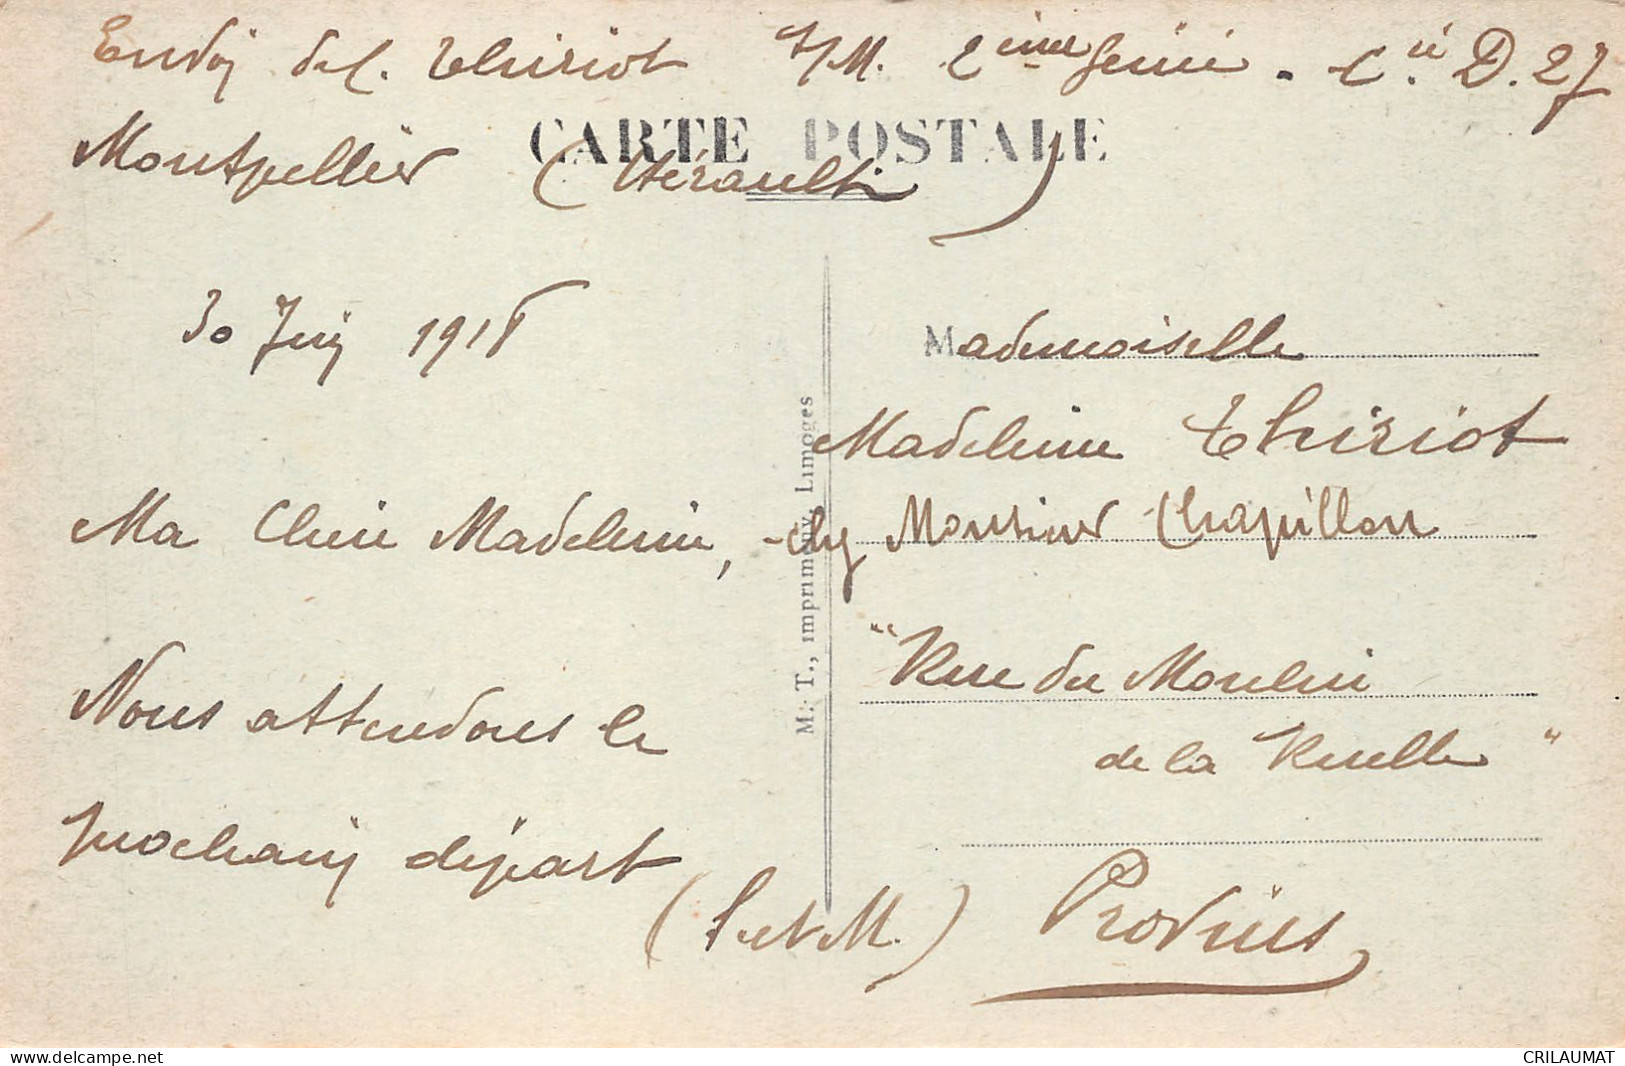 Envoi de L. Thiriot S/M. 2ème Génie. Cie D. 27
CARTE POSTALE
Montpellier (Hérault)
30 Juin 1918
Ma Chère Madeleine,
Nous attendons le
prochain départ
M. T., imprim Limoges
Mademoiselle
Madeleine Thiriot
chez Monsieur Chapillon
"Rue du Moulin
de la Ruelle"
(S. et M.) Provins
www.delcampe.net
CRILAUMAT